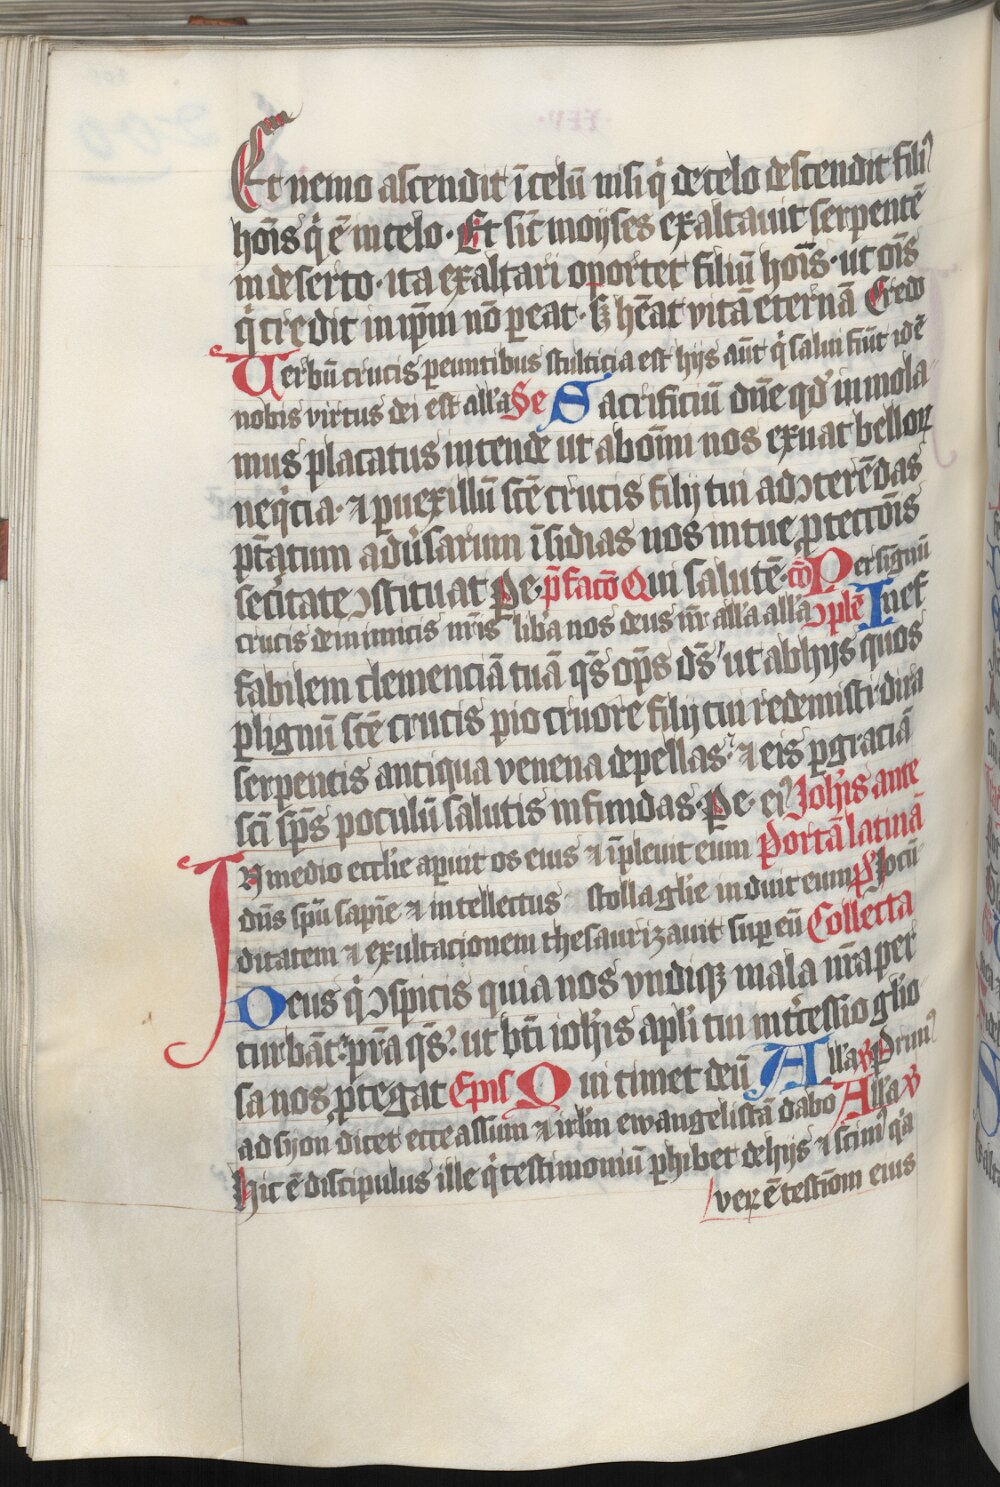 Et nemo ascendit ī celū nisi q̇ de celo descendit fili⁹
hoīs q̇ ē in celo · Et sic̄ moyses exaltauit serpentē
in deserto · ita exaltari oportet filiū hoīs · ut oīs
q̇ credit in ip̄m nō ꝑeat · sꝫ hēat vitā eternā Credo
Verbū crucis ꝑeuntibus stulticia est hijs aūt q̇ salui fiūt idē
nobis virtus dei est all'a Se Sacrificiū dn̄e qd' inmola
mus placatus intende ut ab oīm nos exuat belloꝝ
neq̇cia · ⁊ ꝑ uexillū sc̄e crucis filij tui ad ꝯterēdas
ptātum adu'sarium īsidias nos in tue ꝓtectōis
sec̄itate ꝯstituat Pe · p̄facō Qui salutē · cō Per signū
crucis de inimicis nr̄is lib'a nos deus nr̄ all'a all'a ꝯplē Inef
fabilem clemenciā tuā qs̄ op̄s ds̄ ut ab hijs quos
ꝑ lignū sc̄e crucis pio cruore filij tui redemisti · dira
serpentis antiqua venena depellas · ⁊ eis ꝑ graciā
sc̄i sp̄s poculū salutis infundas · Pe · ei⁹ Joh'is ante
In medio eccl'ie aꝑuit os eius ⁊ īpleuit eum Portā latinā
dn̄s spū sapīe ⁊ intellectus stolla gl'ie induit eum pͬs Jocū
ditatem ⁊ exultacionem thesaurizauit suꝑ eū Collecta
Deus q̇ ꝯspicis quia nos vndiqꝫ mala nr̄a per
turbāt · pr̄a qs̄ · ut bt̄i ioh'is apl'i tui int'cessio glo
sa nos ꝓtegat Epis' Qui timet deū All'a ℣ Prim⁹
ad syon dicet ecce assum ⁊ irl'm ewangelistā dabo All'a ℣
Hic ē discipulus ille q̇ testimoniū ꝑhibet de hijs ⁊ scim⁹ q'a
veꝝ ē testīom eius